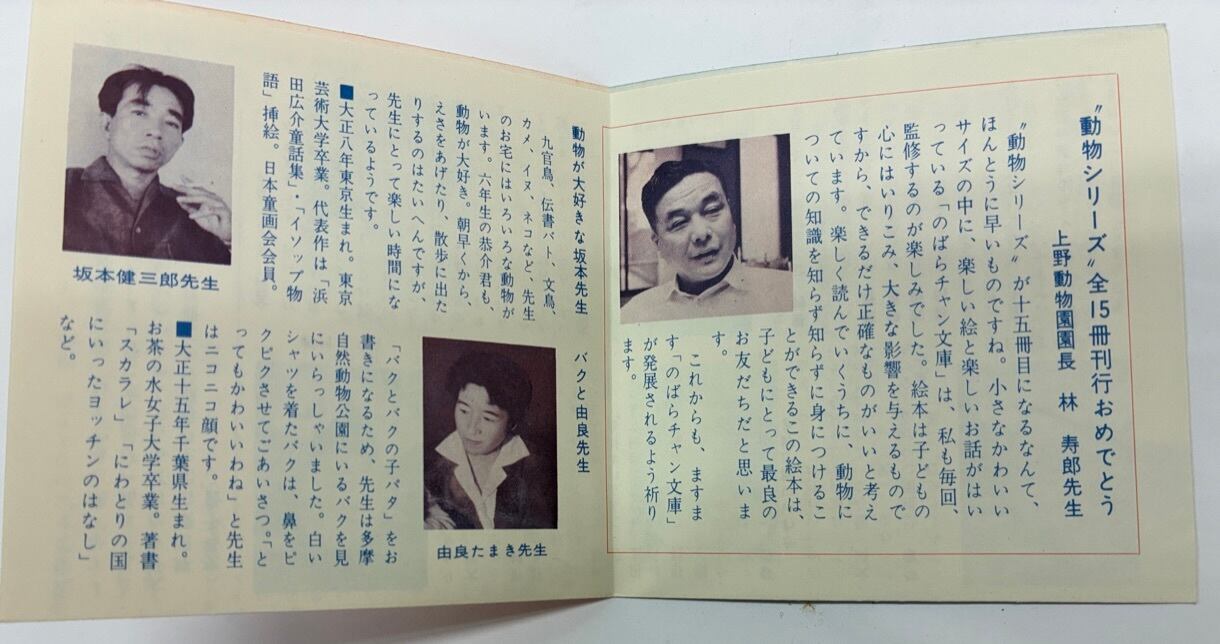 〝動物シリーズ〟全15冊刊行おめでとう
上野動物園園長　林　寿郎先生
〝動物シリーズ〟が十五冊目になるなんて、
ほんとうに早いものですね。小さなかわいい
サイズの中に、楽しい絵と楽しいお話がはい
っている「のばらチャン文庫」は、私も毎回、
監修するのが楽しみでした。絵本は子どもの
心にはいりこみ、大きな影響を与えるもので
すから、できるだけ正確なものがいいと考え
ています。楽しく読んでいくうちに、動物に
ついての知識を知らず知らずに身につけるこ
とができるこの絵本は、
子どもにとって最良の
お友だちだと思いま
す。
これからも、ますま
す「のばらチャン文庫」
が発展されるよう祈り
ます。
動物が大好きな坂本先生
九官鳥、伝書バト、文鳥、
カメ、イヌ、ネコなど、先生
のお宅にはいろいろな動物が
います。六年生の恭介君も、
動物が大好き。朝早くから、
えさをあげたり、散歩に出た
りするのはたいへんですが、
先生にとって楽しい時間にな
っているようです。
■大正八年東京生まれ。東京
芸術大学卒業。代表作は「浜
田広介童話集」・「イソップ物
語」挿絵。日本童画会会員。
坂本健三郎先生
バクと由良先生
「バクとバクの子パタ」をお
書きになるため、先生は多摩
自然動物公園にいるバクを見
にいらっしゃいました。白い
シャツを着たバクは、鼻をピ
クピクさせてごあいさつ。「と
ってもかわいいわね」と先生
はニコニコ顔です。
■大正十五年千葉県生まれ。
お茶の水女子大学卒業。著書
「スカラレ」「にわとりの国
にいったヨッチンのはなし」
など。
由良たまき先生